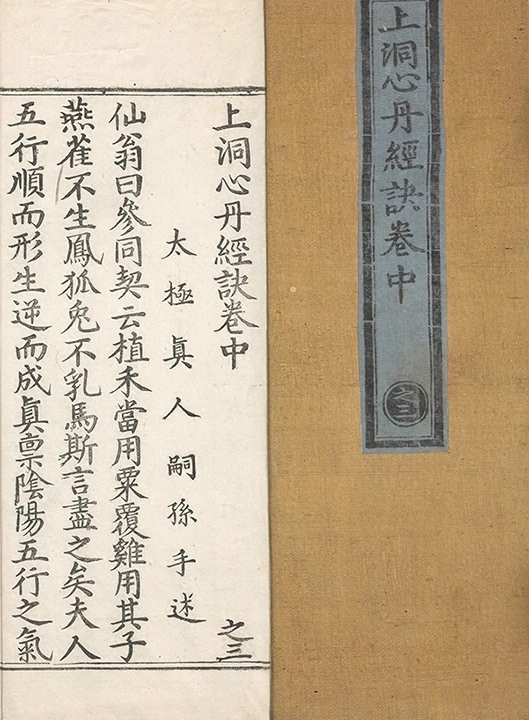 上洞心丹經訣卷中
之三
上洞心丹經訣卷中
之三
太極眞人嗣孫手述
仙翁曰參同契云植禾當用粟覆雞用其子
燕雀不生鳳狐兎不乳馬斯言盡之矣夫人
五行順而形生逆而成眞禀陰陽五行之氣